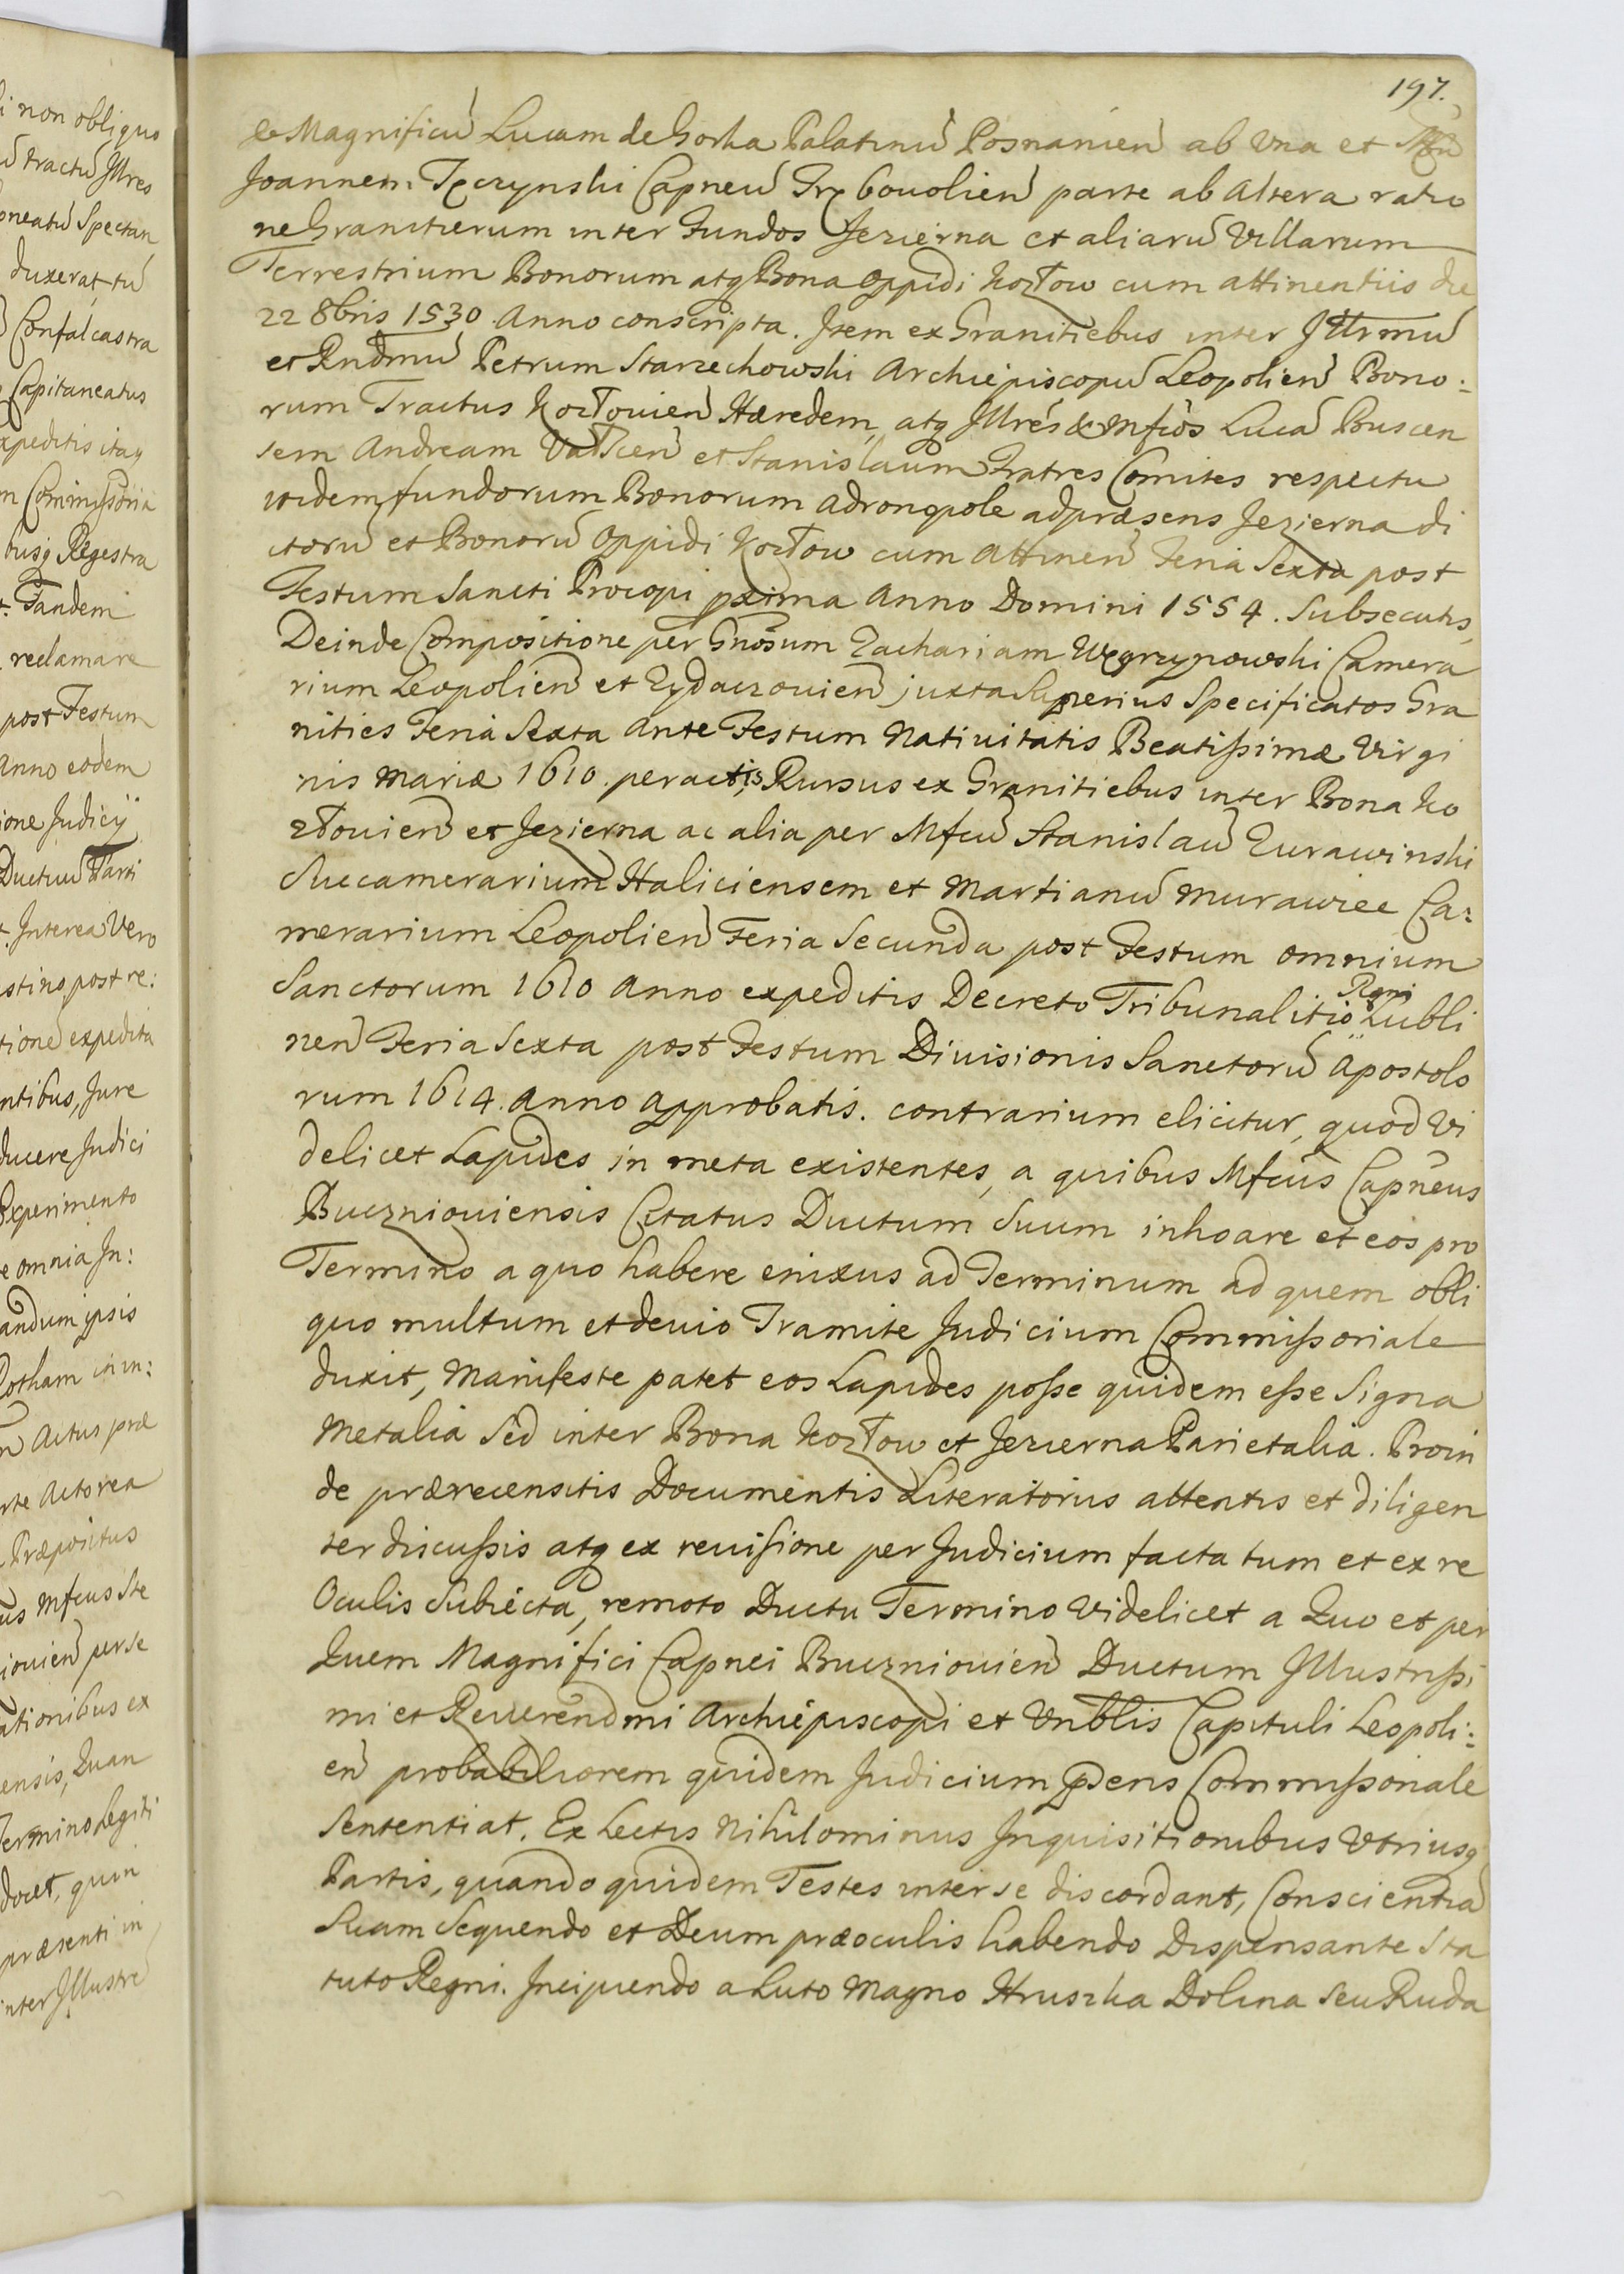 i non obliquo
tractũ Jllres
oneatũ Spectan
duxerat, tũ
Confalcastra
Capitaneatus
xpeditis itaq
m Commissoria
busq Regestra
Tandem
reclamare
post Festum
Anno eodem
ione Judicij
Ductuũ Parti
Interea Vero
stino, post re:
tione expedita
ntibus, Jure
ducere Judici
Experimento
e omnia Jn:
andum ipsis
in in:
Actus præ
rte Actorea
Præpositus
us Mfcus Ste
iouien̄ per se
ationibus ex
ensis, Quan
Termino Legiti
docet, quin
præsenti in
inter Jllustre
197.
& Magnificũ Lucam de Gorka Palatinũ Posnanien̄ ab Vna et
Joannem Tęczynski Capneũ Trębouolien̄ parte ab Altera ratio
ne Granitierum inter Fundos Jezierna et aliarũ Villarum
Terrestrium Bonorum atq Bona Oppidi Kozłow cum attinentiis die
22 8bris 1530 Anno conscripta. Jtem ex Granitiebus inter Jllrmũ
et Rndmũ Petrum Starzechowski Archiepiscopũ Leopolien̄ Bono:
rum Tractus Kozłouien̄ Hæredem, atq Jllres & Mfcos Lucã Buscen
sem Andream Vałscen̄ et Stanislaum Fratres Comites respectu
itidem fundorum Bonorum Adronopole ad præsens Jezierna di
ctorũ et Bonorũ Oppidi Kozłow cum Attinen̄ Feria Sexta post
Festum Sancti Procopi pxima Anno Domini 1554. Subsecutis,
Deinde Compositione per Gnosum Zachariam Węgrzynowski Camera
rium Leopolien̄ et Zydaczouien̄ juxta Superius Specificatos Gra
nities Feria Sexta Ante Festum Natiuitatis Beatissimæ Virgi
nis Mariæ 1610. peractis, Rursus ex Granitiebus inter Bona Ko
złouien̄ et Jezierna ac alia per Mfcũ Stanislaũ Zurawinski
Succamerarium Haliciensem et Martianũ Murawiec Ca:
merarium Leopolien̄ Feria Secunda post Festum Omnium
Sanctorum 1610 Anno expeditis Decreto Tribunalitio Regni Lubli
nen̄ Feria Sexta post Festum Diuisionis Sanctorũ Apostolo
rum 1614. Anno Approbatis. contrarium elicitur, quod Vi
delicet Lapides in meta existentes, a quibus Mfcus Capneus
Buczniouiensis Citatus Ductum Suum inhoare et eos pro
Termino a quo habere enixus ad Terminum ad quem obli
quo multum et deuio Tramite Judicium Commissoriale
duxit, Manifeste patet eos Lapides posse quidem esse Signa
Metalia Sed inter Bona Kozłow et Jezierna Parietalia. Proin
de prærecensitis Documentis Literatoriis attentis et diligen
ter discussis atq ex reuisione per Judicium facta tum et ex re
Oculis Subiecta, remoto Ductu Termino Videlicet a Quo et per
Quem Magnifici Capnei Buczniouien̄ Ductum Jllustrissi
mi et Reuerendmi Archiepiscopi et Vnblis Capituli Leopoli:
en̄ probabiliorem quidem Judicium psens Commissoriale
Sententiat. Ex Lectis Nihilominus Jnquisitionibus Vtriusq
Partis, quandoquidem Testes inter se discordant, Conscientiã
Suam Sequendo et Deum præ oculis habendo Dispensante Sta
tuto Regni. Jncipiendo a Luto Magno Hruszka Dolina Seu Ruda